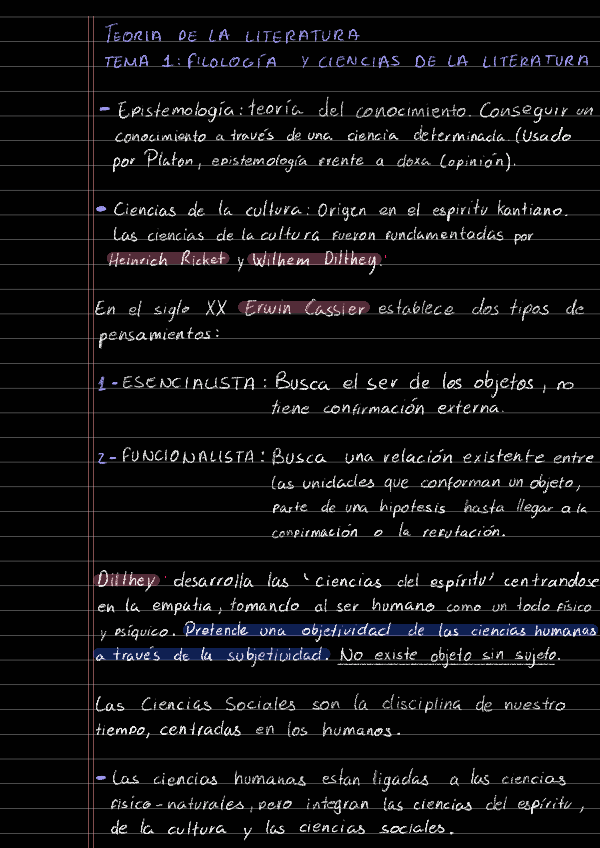 TEORIA DE LA LITERATURA
TEMA 1: FILOLOGÍA Y CIENCIAS DE LA LITERATURA
- Epistemología: teoría del conocimiento. Conseguir un
conocimiento a través de una ciencia determinada (Usado
por Platon, epistemología frente a doxa (opinión).
- Ciencias de la cultura: Origen en el espiritu kantiano.
Las ciencias de la cultura fueron fundamentadas por
Heinrich Ricket y Wilhem Dilthey.
En el siglo XX Erwin Cassier establece dos tipos de
pensamientos:
1- ESENCIALISTA: Busca el ser de los objetos, no
tiene confirmación externa.
2- FUNCIONALISTA: Busca una relación existente entre
las unidades que conforman un objeto,
parte de una hipotesis hasta llegar a la
confirmación o la refutación.
Dilthey desarrolla las 'ciencias del espíritu' centrandose
en la empatia, tomando al ser humano como un todo físico
y psíquico. Pretende una objetividad de las ciencias humanas
a través de la subjetividad. No existe objeto sin sujeto.
Las Ciencias Sociales son la disciplina de nuestro
tiempo, centradas en los humanos.
- Las ciencias humanas estan ligadas a las ciencias
fisico-naturales, pero integran las ciencias del espíritu,
de la cultura y las ciencias sociales.